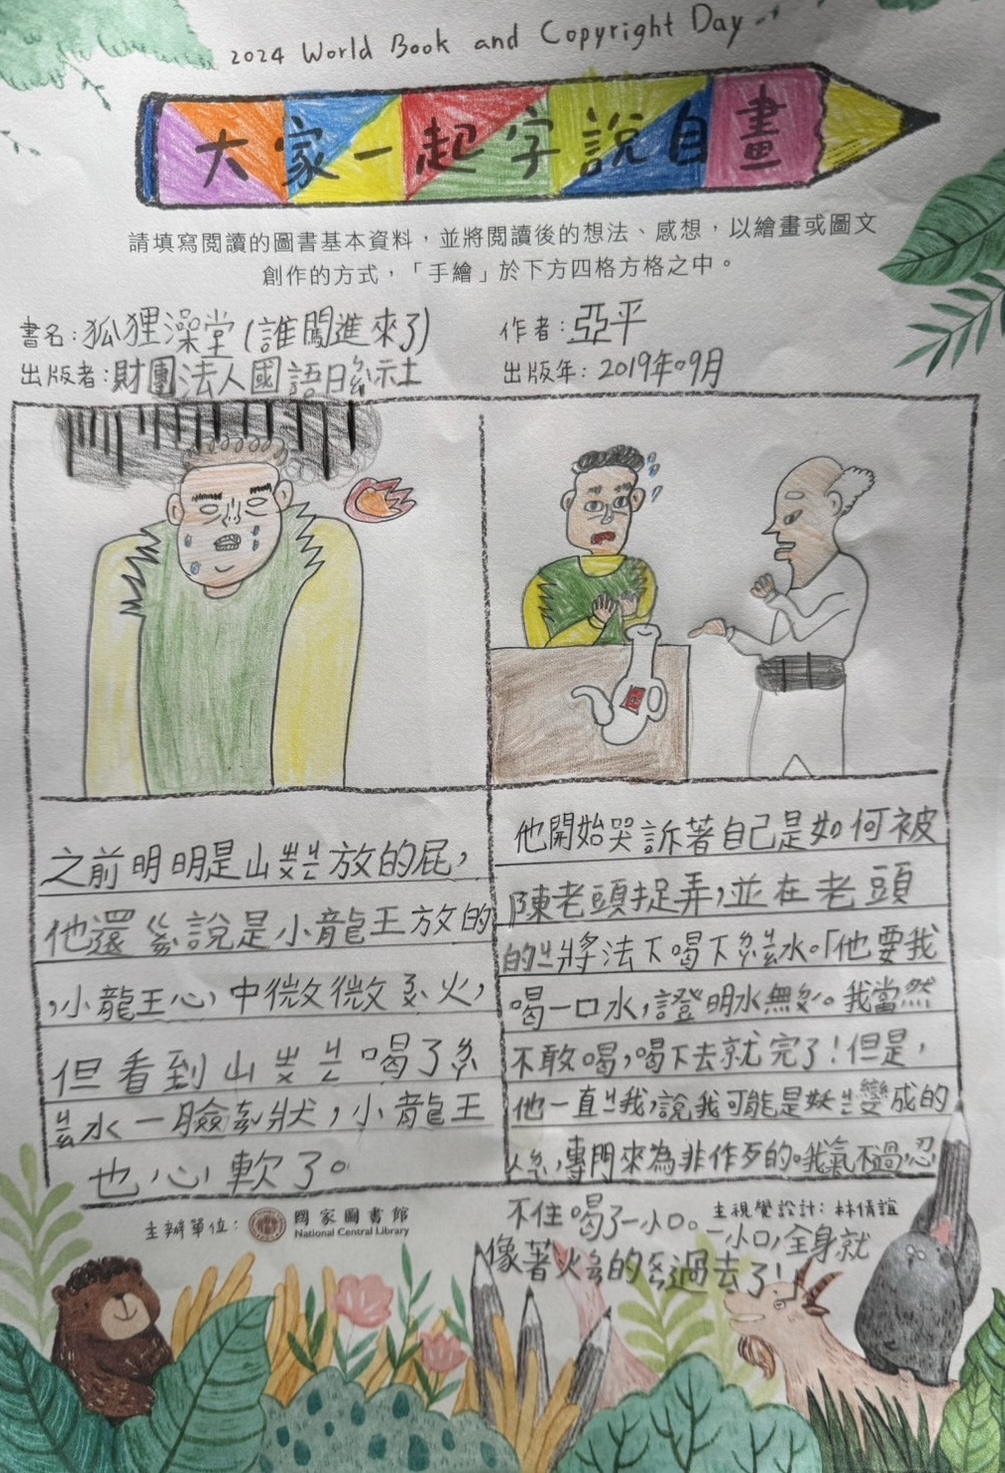 2024 World Book and Copyright Day
大家一起字說自畫
請填寫閱讀的圖書基本資料，並將閱讀後的想法、感想，以繪畫或圖文
創作的方式，「手繪」於下方四格方格之中。
書名:狐狸澡堂(誰闖進來了)
作者:亞平
出版者:財團法人國語日 社
出版年:2019年09月
之前明明是山 放的屁，
他還 說是小龍王放的
，小龍王心中微微 火，
但看到山 喝了
水一臉 狀，小龍王
也心軟了。
他開始哭訴著自己是如何被
陳老頭捉弄，並在老頭
的 將法下喝下 水。「他要我
喝一口水，證明水無 。我當然
不敢喝，喝下去就完了！但是，
他一直 我，說我可能是妖 變成的
，專門來為非作歹的。我氣不過，忍
不住喝了一小口。一小口，全身就
像著火 的 過去了！」
主辦單位:
國家圖書館
National Central Library
主視覺設計:林倩誼